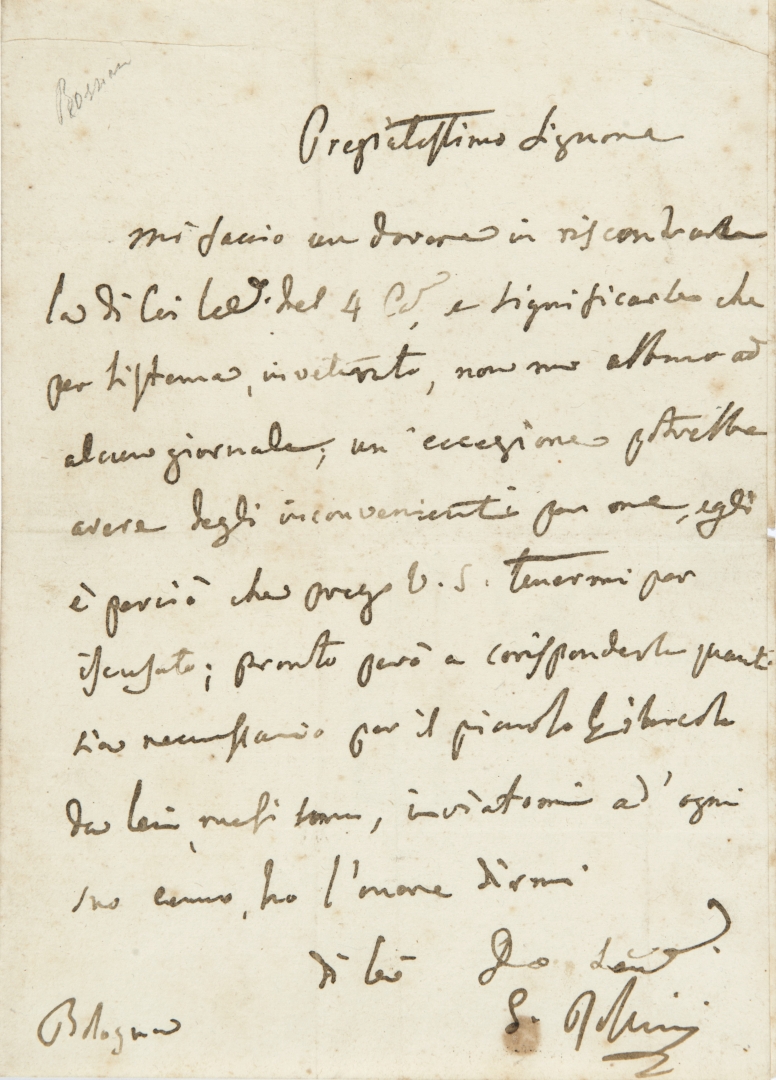 Rossini
Pregiatissimo Signore
Mi faccio un dovere in riscontrare
la di Lei lett.ª del 4 Cor.e, e significarle che
per sistema, inveterato, non mi abbuono ad
alcun giornale; un eccezione potrebbe
avere degli inconvenienti per me, egli
è perciò che prego V. S. tenermi per
iscusato; pronto però a corrisponderle quanto
sia necessario per il piccolo
da Lei, inviatomi ad' ogni
suo cenno, ho l'onore dirmi
di Lei
G. Rossini
Bologna